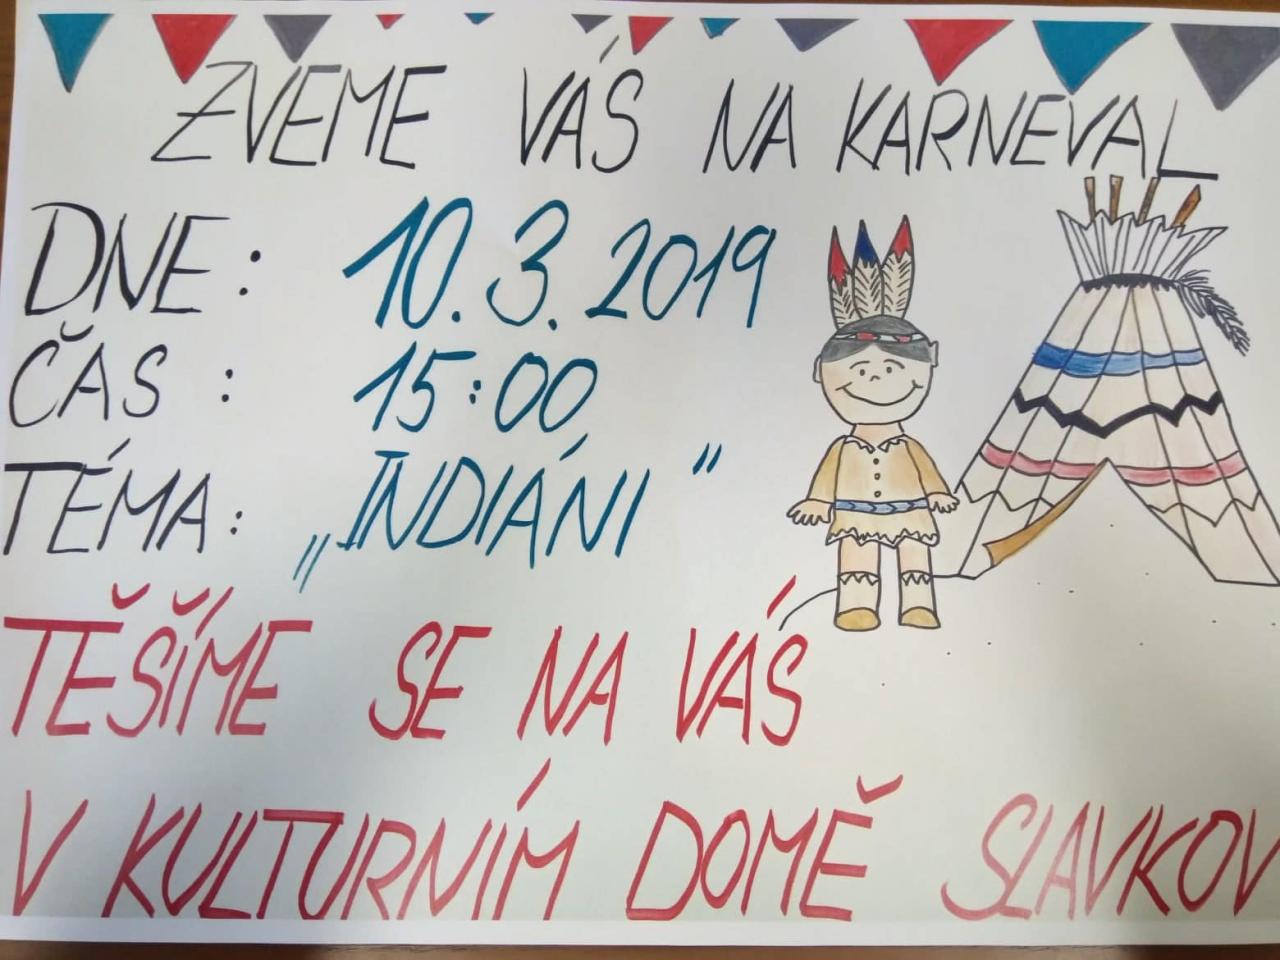 ZVEME VÁS NA KARNEVAL
DNE: 10.3.2019
ČAS: 15:00
TÉMA: „INDIÁNI"
TĚŠÍME SE NA VÁS
V KULTURNÍM DOMĚ SLAVKOV